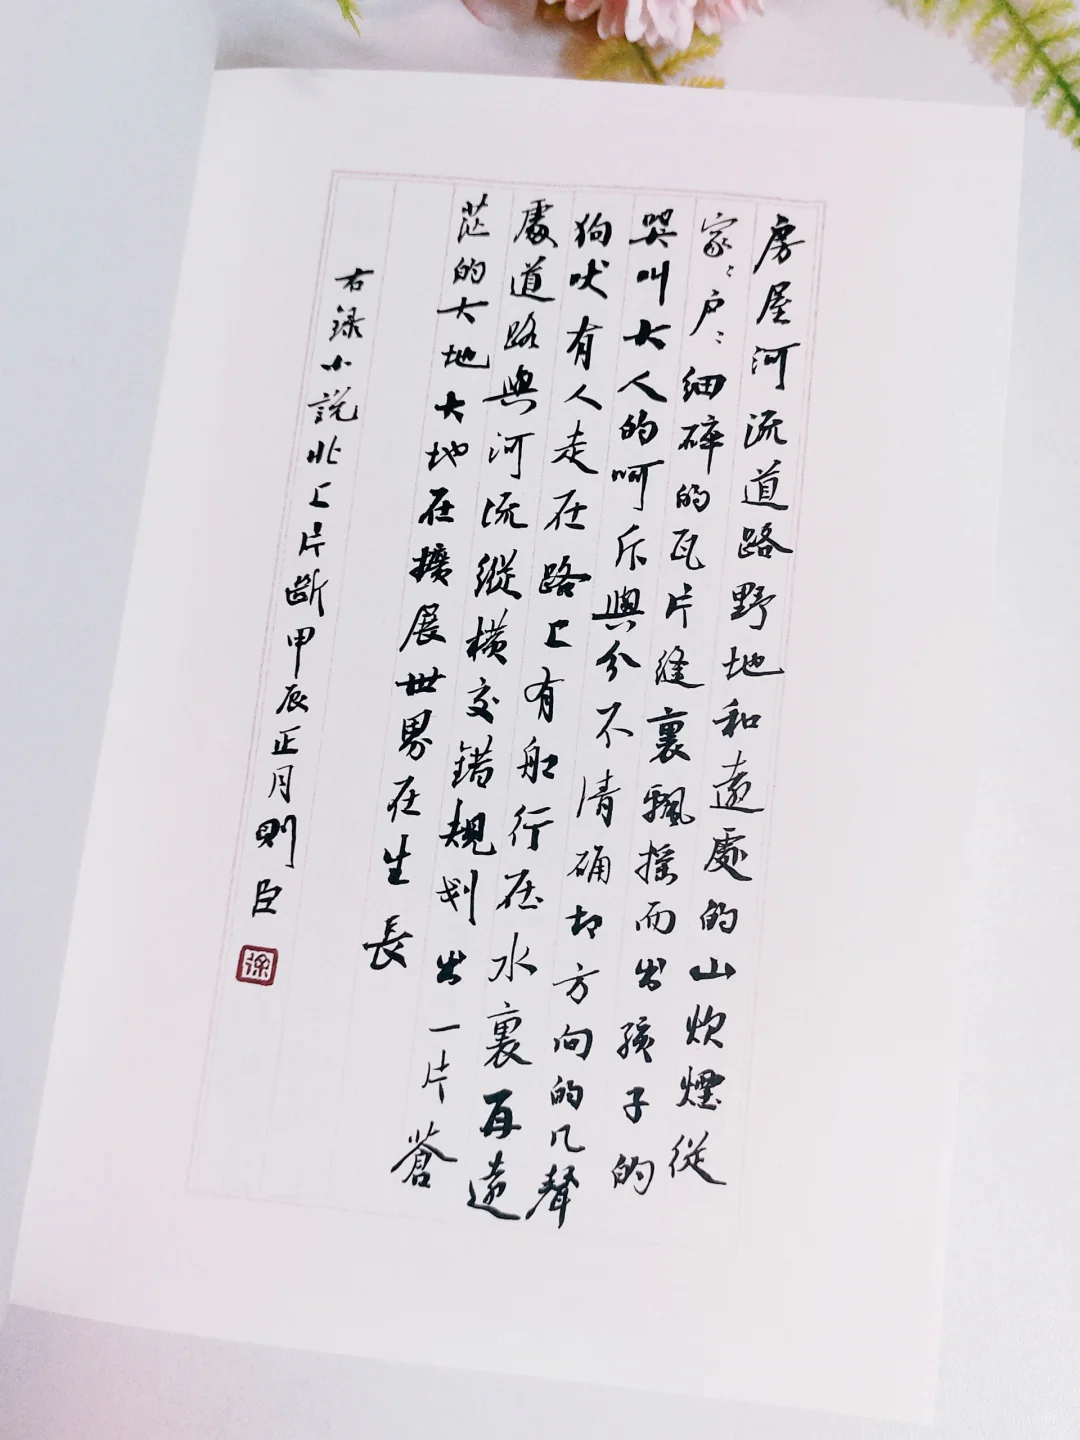 房屋河流道路野地和遠處的山炊煙從
家〻户〻細碎的瓦片縫裏飄摇而出孩子的
哭叫大人的呵斥與分不清确却方向的几聲
狗吠有人走在路上有船行在水裏再遠
處道路與河流縱横交錯規划出一片蒼
茫的大地大地在擴展世界在生長
右録小説北上片斷甲辰正月則臣
徐